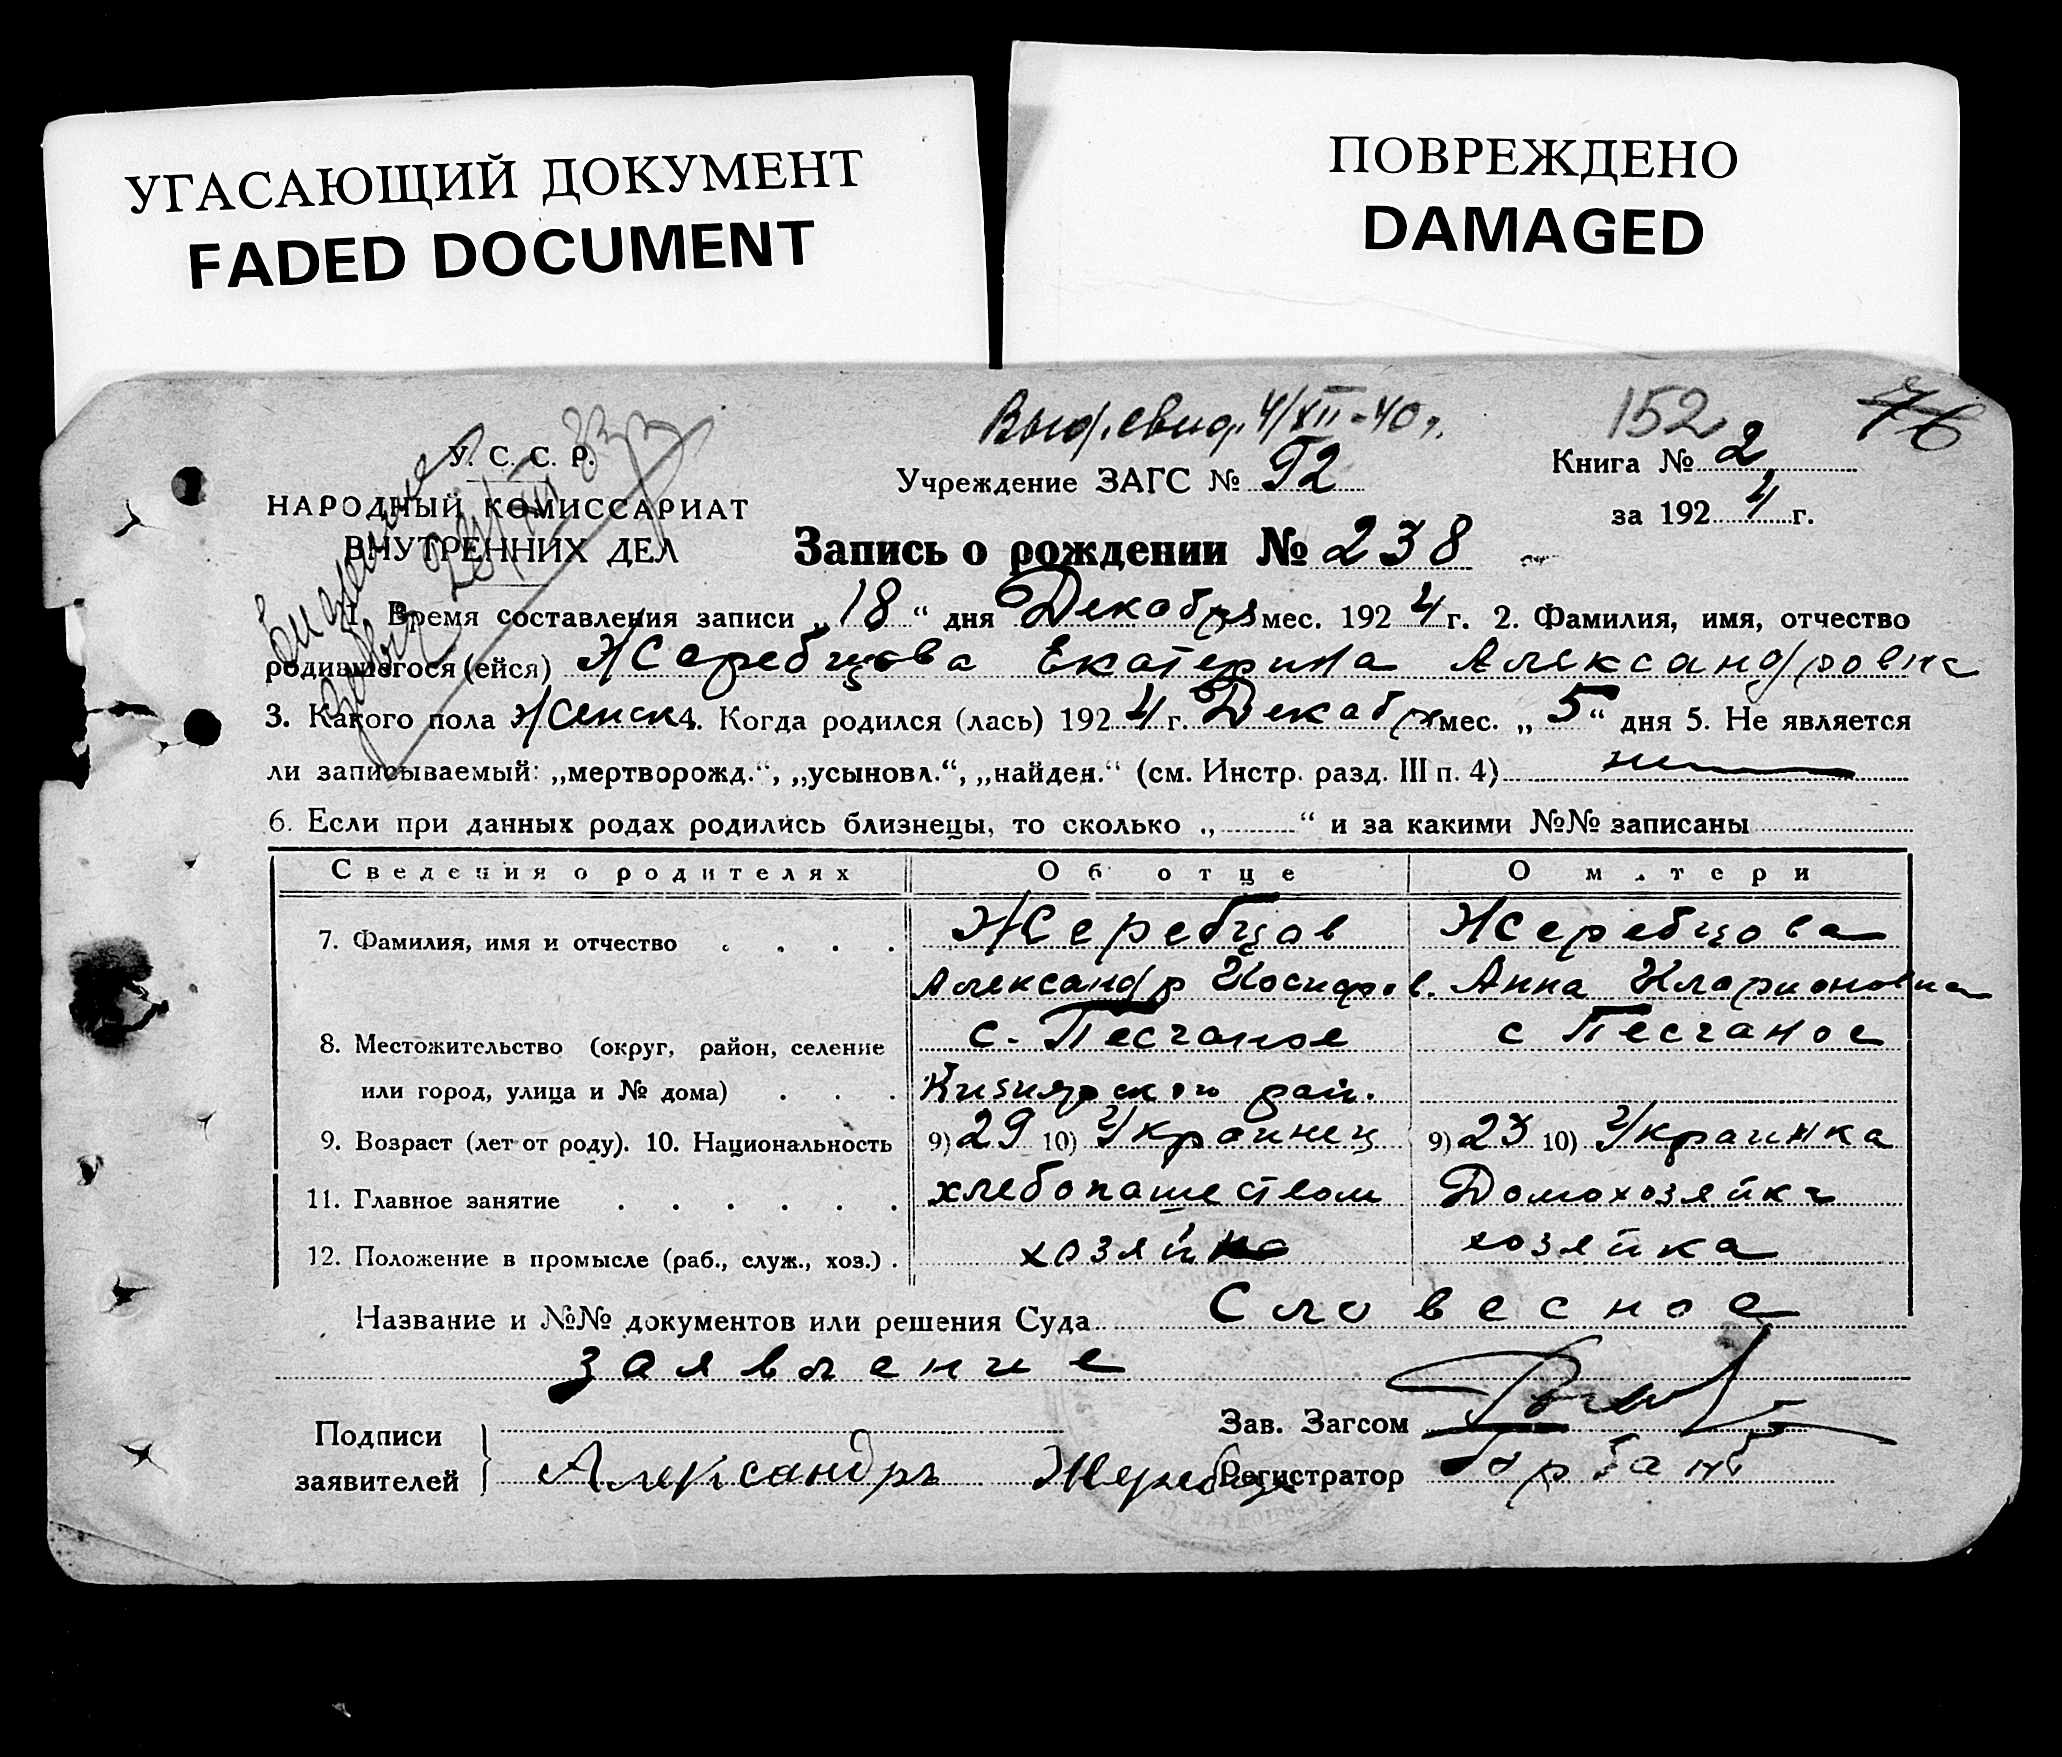 УГАСАЮЩИЙ ДОКУМЕНТ
FADED DOCUMENT
ПОВРЕЖДЕНО
DAMAGED
Выд. свид. 4/XII-40 г.
152
76
У. С. С. Р.
НАРОДНЫЙ КОМИССАРИАТ
ВНУТРЕННИХ ДЕЛ
Учреждение ЗАГС № 92
Книга № 2
за 1924 г.
Запись о рождении № 238
1. Время составления записи „18“ дня Декабря мес. 1924 г. 2. Фамилия, имя, отчество
родившегося (ейся) Жеребцова Екатерина Александровна
3. Какого пола женск 4. Когда родился (лась) 1924 г. Декабр мес. „5“ дня 5. Не является
ли записываемый: „мертворожд.“, „усыновл.“, „найден.“ (см. Инстр. разд. III п. 4)
6. Если при данных родах родились близнецы, то сколько „ “ и за какими №№ записаны
Сведения о родителях Об отце О матери
7. Фамилия, имя и отчество Жеребцов Жеребцова
Александр Иосифов. Анна Иларионовна
8. Местожительство (округ, район, селение с. Песчаное с Песчаное
или город, улица и № дома) Кизиярского рай.
9. Возраст (лет от роду). 10. Национальность 9) 29 10) Украинец 9) 23 10) Украинка
11. Главное занятие хлебопашеством Домохозяйка
12. Положение в промысле (раб., служ., хоз.) хозяин хозяйка
Название и №№ документов или решения Суда Словесное
заявление
Подписи
заявителей Александръ
Зав. Загсом
Регистратор Горбань